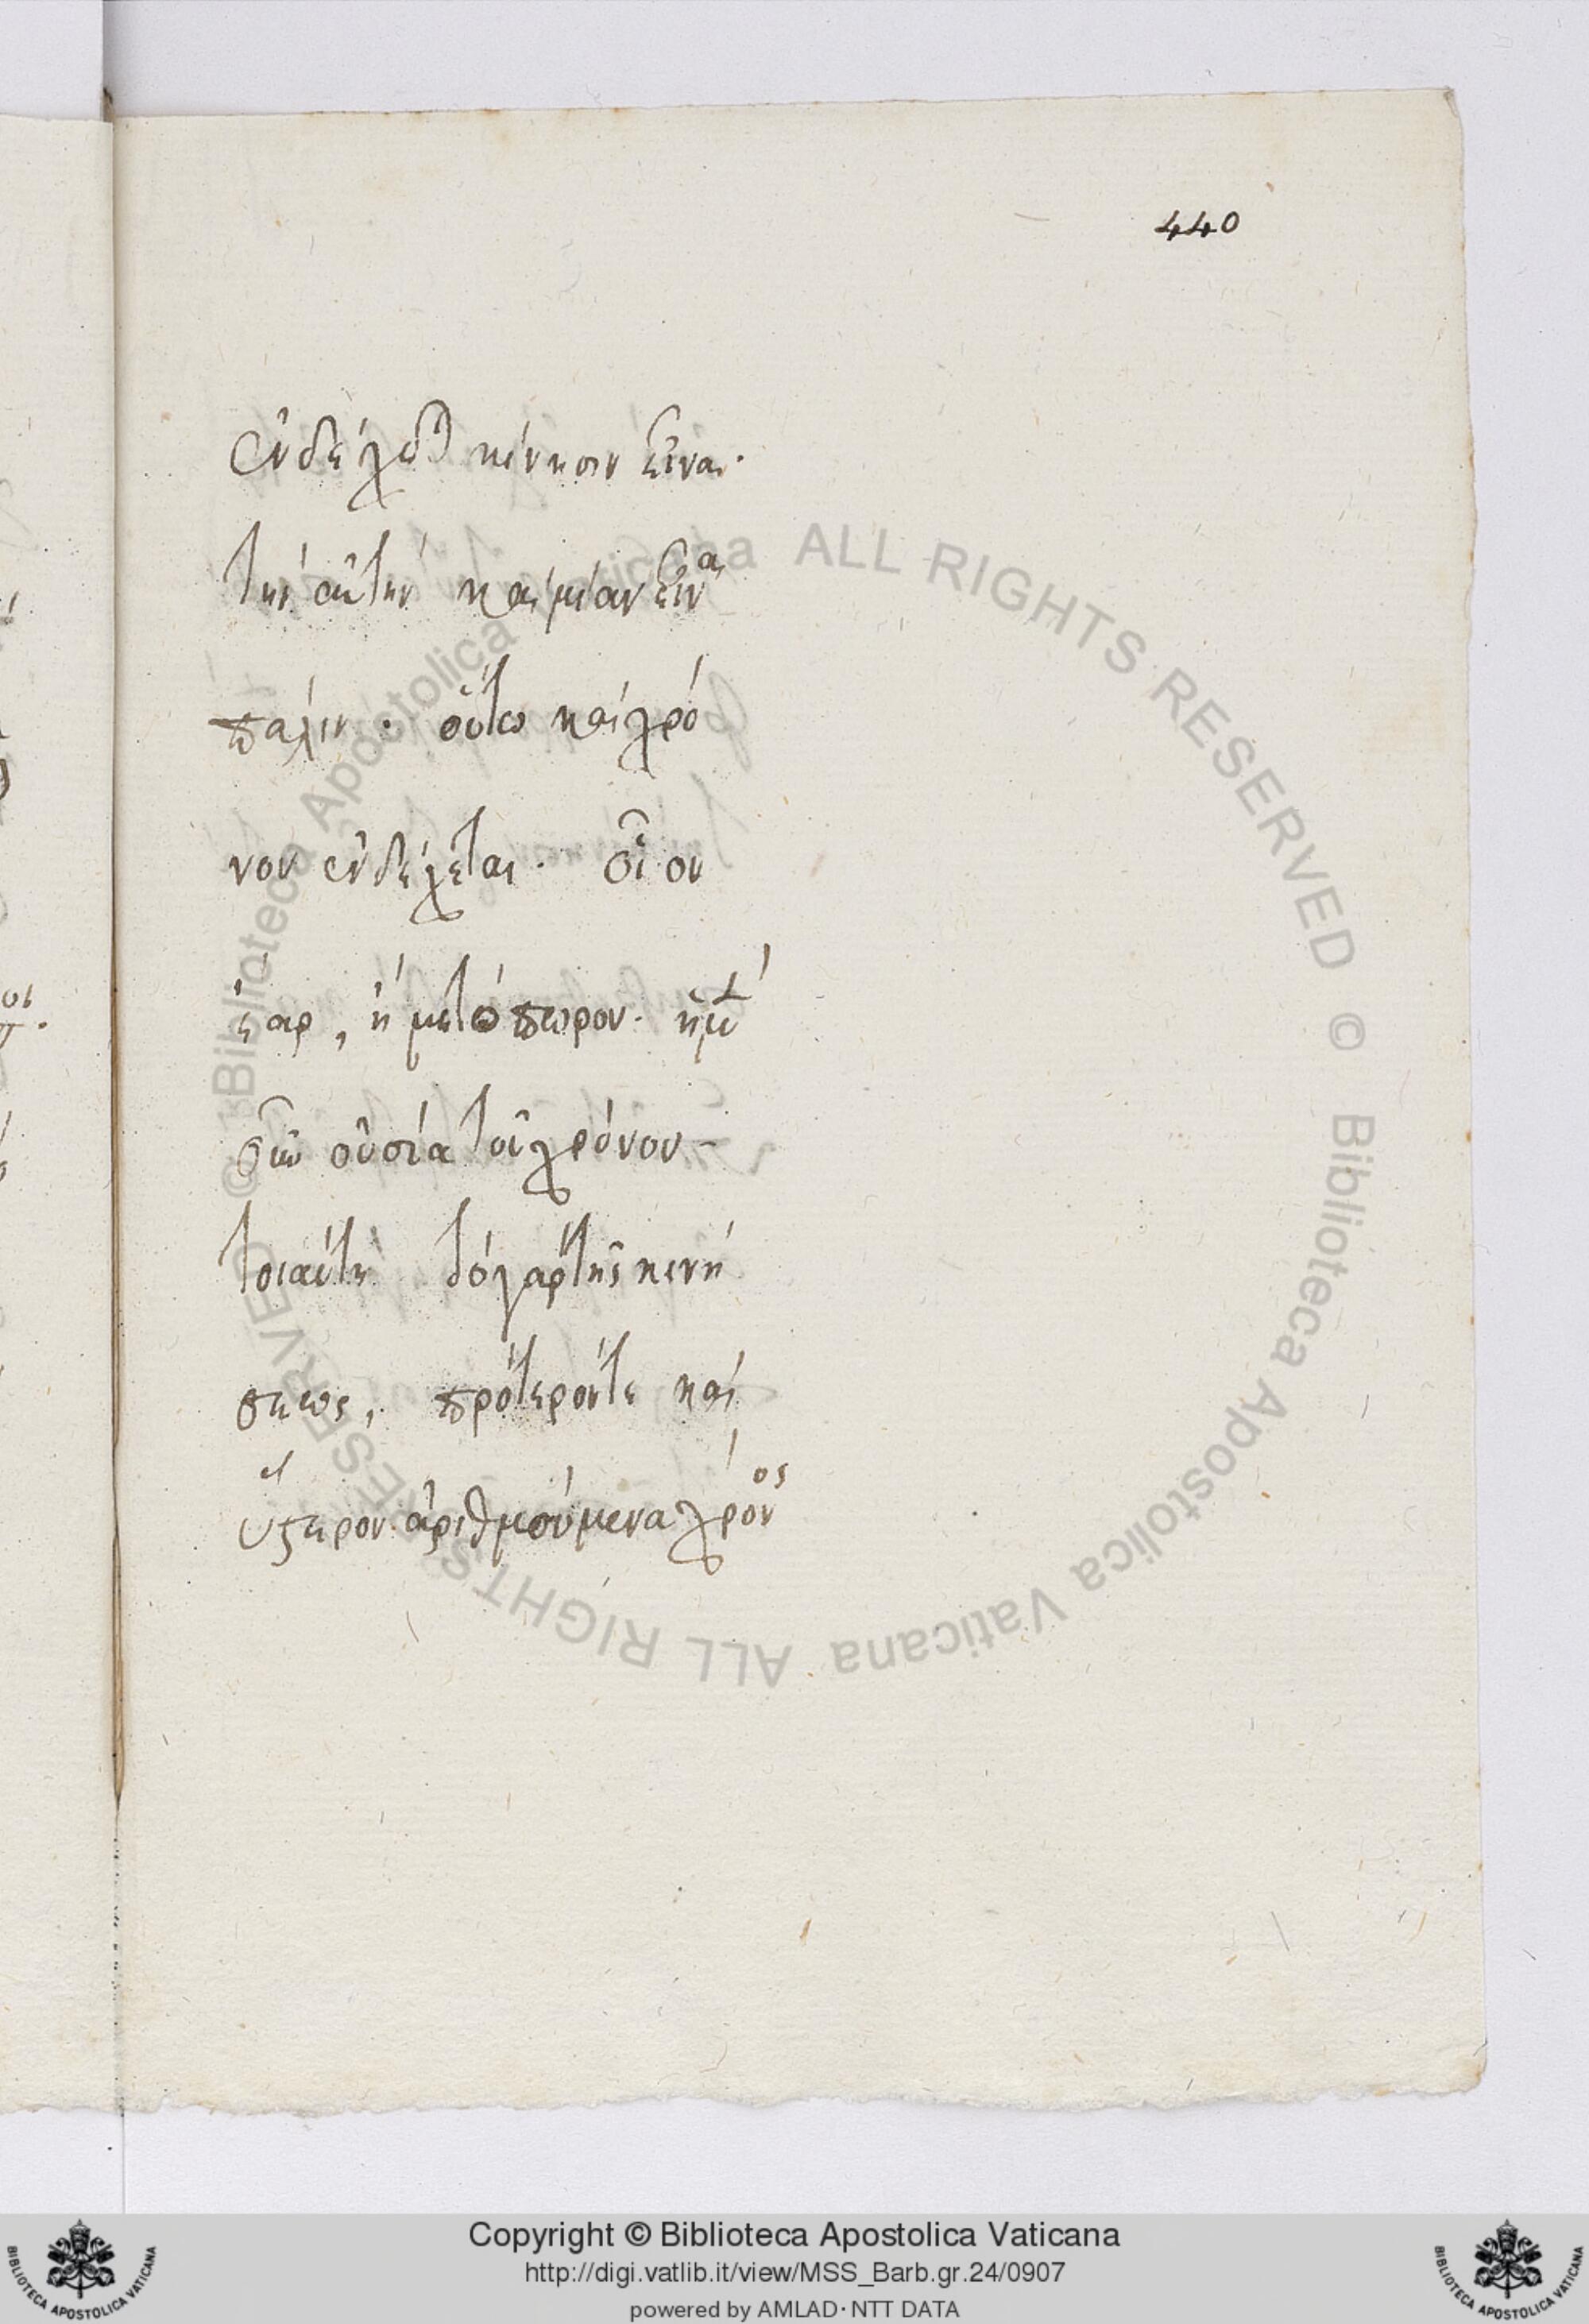 440
ἐνδέχεσθαι κίνησιν εἶναι·
τὴν αὐτὴν καὶ μίαν εἶναι
πάλιν· οὕτω καὶ χρό
νον ἐνδέχεται· οἷον
ἔαρ, ἢ μετόπωρον· ἡ μὲν
οὖν οὐσία τοῦ χρόνου
τοιαύτη τὸ γὰρ τῆς κινή
σεως, πρότερόν τε καὶ
ὕστερον ἀριθμούμενα χρόνος
© Biblioteca Apostolica Vaticana ALL RIGHTS RESERVED © Biblioteca Apostolica Vaticana ALL RIGHTS RESERVED
Copyright © Biblioteca Apostolica Vaticana
http://digi.vatlib.it/view/MSS_Barb.gr.24/0907
powered by AMLAD·NTT DATA
BIBLIOTECA APOSTOLICA VATICANA
BIBLIOTECA APOSTOLICA VATICANA